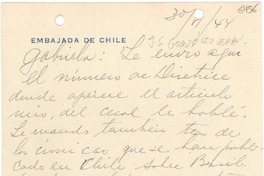 30/9/44
EMBAJADA DE CHILE
Gabriela: Le envío aquí
el número de Directrices
donde aparece el artículo
mío, del cual le hablé.
Le mando también tres de
las crónicas que se han publi-
cado en Chile, sobre Brasil